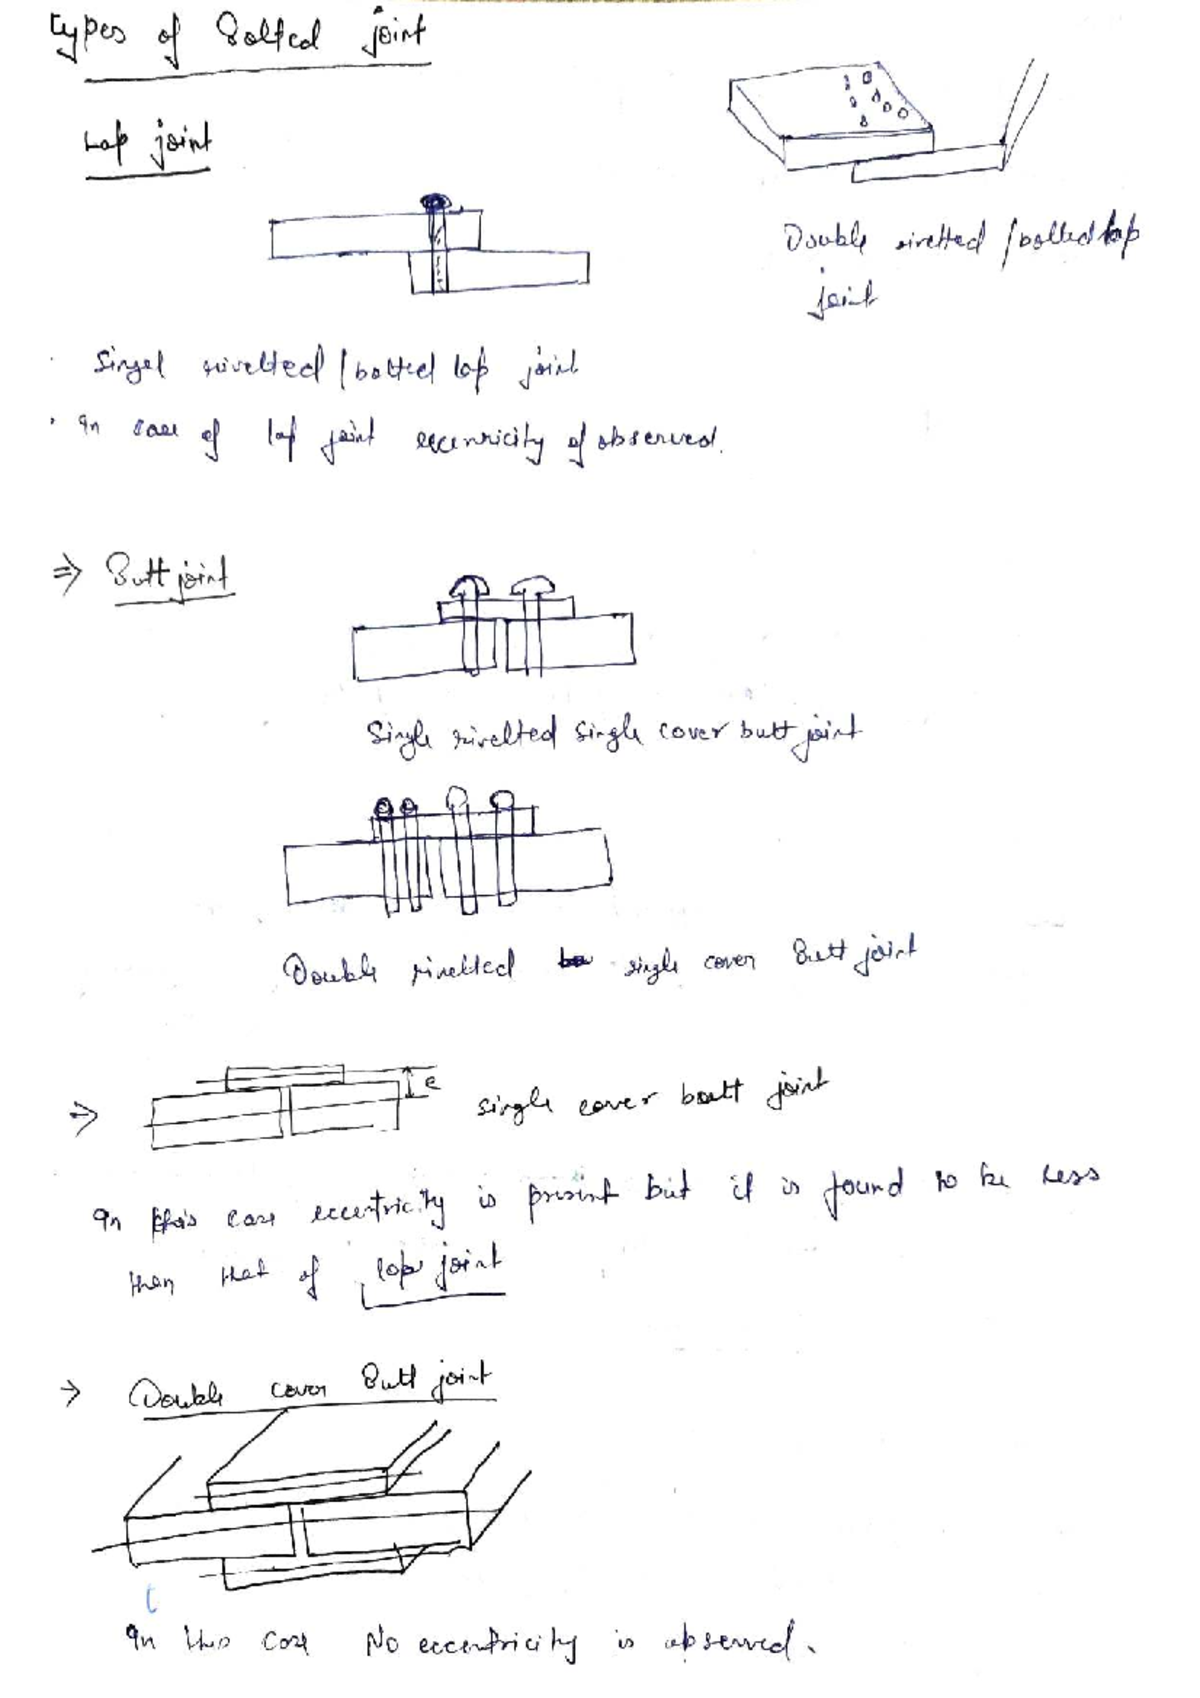 types of Bolted joint
Lap joint
Double rivetted / bolted lap
joint
Singel rivetted / bolted lap joint
In case of lap joint eccenricity of observed.
⇒ Butt joint
Single rivetted single cover butt joint
Double rivetted single cover Butt joint
⇒ e single cover butt joint
In this case eccentricity is present but it is found to be less
then that of lap joint
→ Double cover Butt joint
In this case No eccentricity is observed.